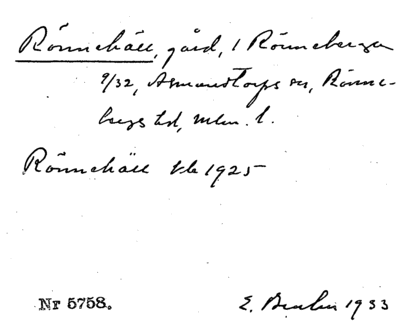 Rönnehäll, gård, 1 Rönneberga
9/32, Asmundtorps sn, Rönne-
bergs hd, Mlm. l.
Rönnehäll 1925
Nr 5758.
E. 1933